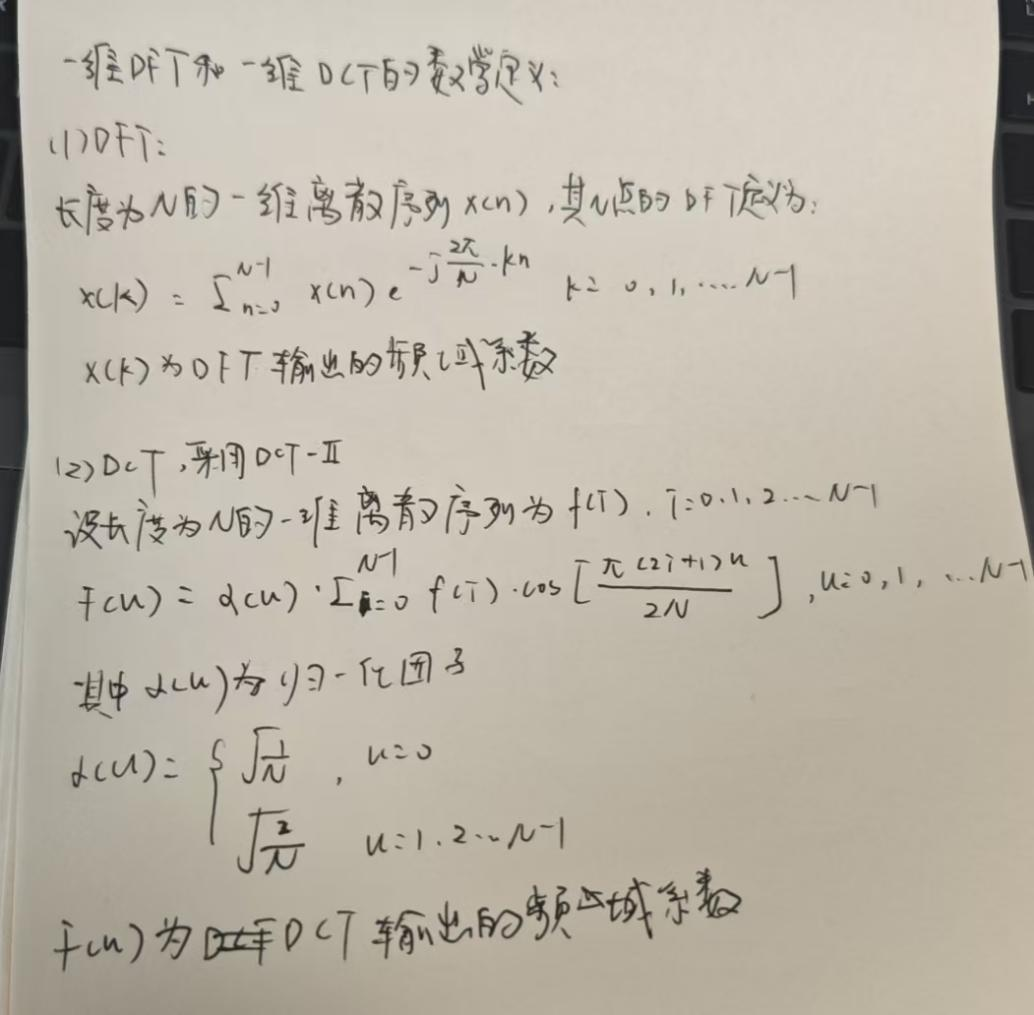 一维DFT和一维DCT的数学定义:
(1)DFT:
长度为N的一维离散序列x(n),其N点的DFT定义为:
x(k) = Σ_{n=0}^{N-1} x(n) e^{-j\frac{2π}{N}·kn} k= 0,1,....N-1
x(k)为DFT输出的频域系数
(2)DCT,采用DCT-Ⅱ
设长度为N的一维离散序列为f(i), i=0,1,2...N-1
F(u) = α(u)·Σ_{i=0}^{N-1} f(i)·cos[\frac{π(2i+1)u}{2N}], u=0,1,...N-1
其中α(u)为归一化因子
α(u)= { √\frac{1}{N} , u=0
√\frac{2}{N} u=1,2...N-1
F(u)为DCT输出的频域系数